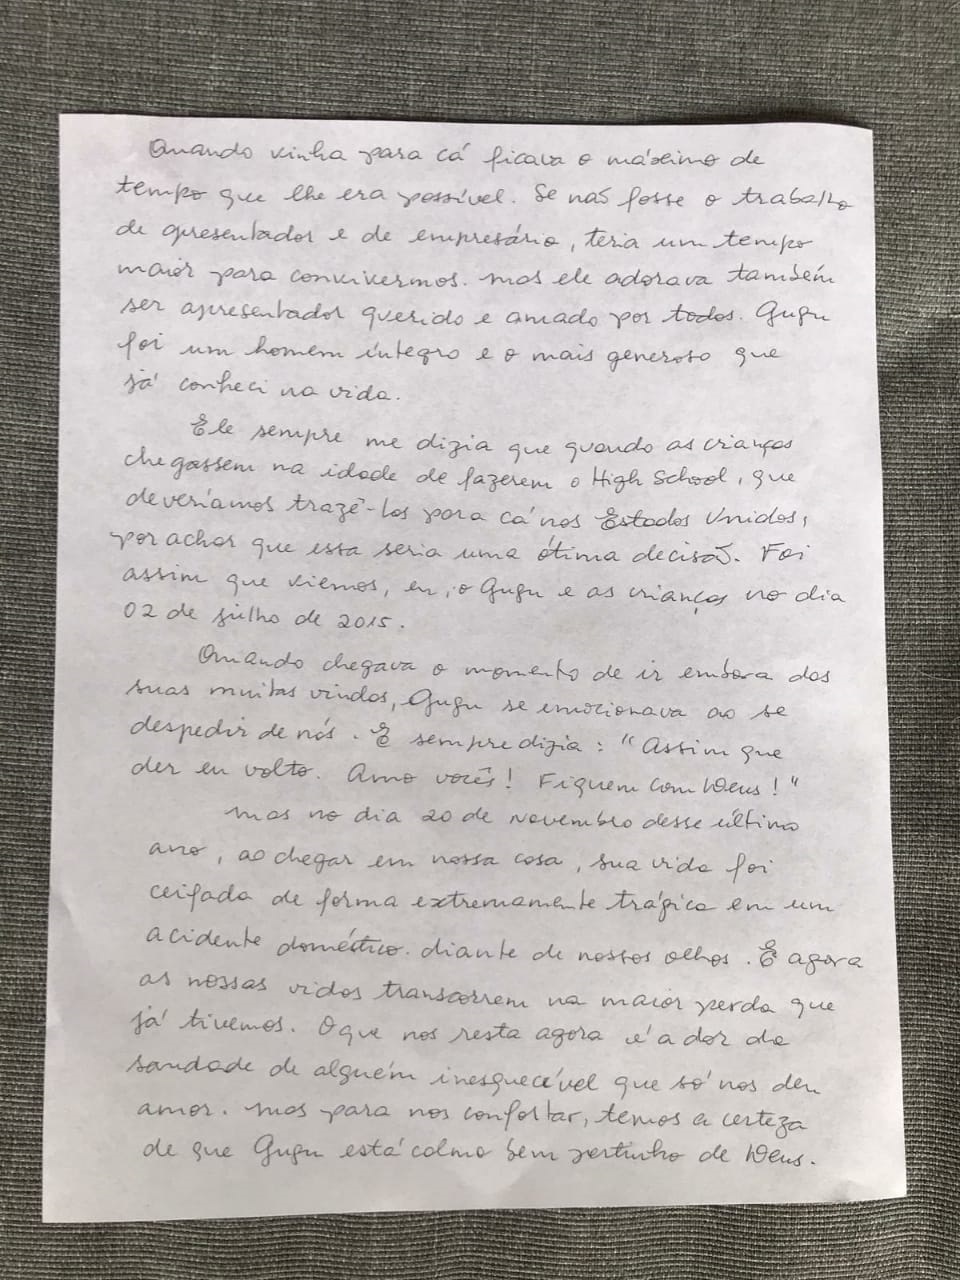 Quando vinha para cá ficava o máximo de
tempo que lhe era possível. Se não fosse o trabalho
de apresentador e de empresário, teria um tempo
maior para convivermos. Mas ele adorava também
ser apresentador querido e amado por todos. Gugu
foi um homem íntegro e o mais generoso que
já conheci na vida.
Ele sempre me dizia que quando as crianças
chegassem na idade de fazerem o High School, que
deveríamos trazê-los para cá nos Estados Unidos,
por achar que essa seria uma ótima decisão. Foi
assim que viemos, eu, o Gugu e as crianças no dia
02 de julho de 2015.
Quando chegava o momento de ir embora das
suas muitas vindas, Gugu se emocionava ao se
despedir de nós. E sempre dizia: "Assim que
der eu volto. Amo vocês! Fiquem com Deus!"
Mas no dia 20 de novembro desse último
ano, ao chegar em nossa casa, sua vida foi
ceifada de forma extremamente trágica em um
acidente doméstico. diante de nossos olhos. E agora
as nossas vidas transcorrem na maior perda que
já tivemos. O que nos resta agora é a dor da
saudade de alguém inesquecível que só nos deu
amor. Mas para nos confortar, temos a certeza
de que Gugu está calmo bem pertinho de Deus.